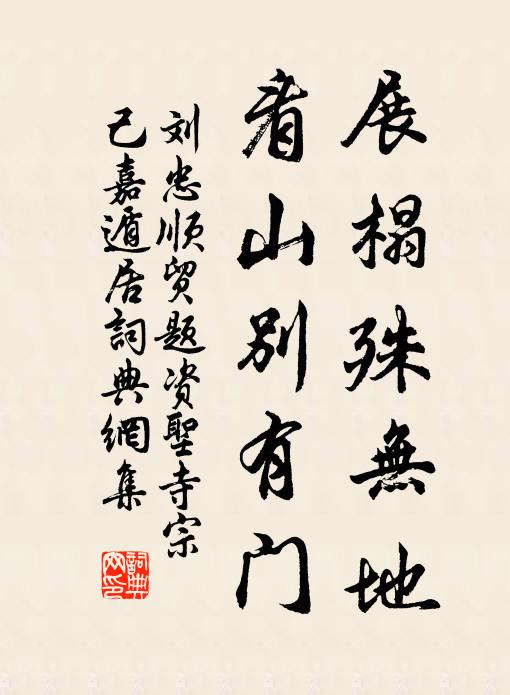 展榻殊無地
看山别有門
刘忠顺贸题资聖寺宗
己嘉遁居詞典網集
詞典網印